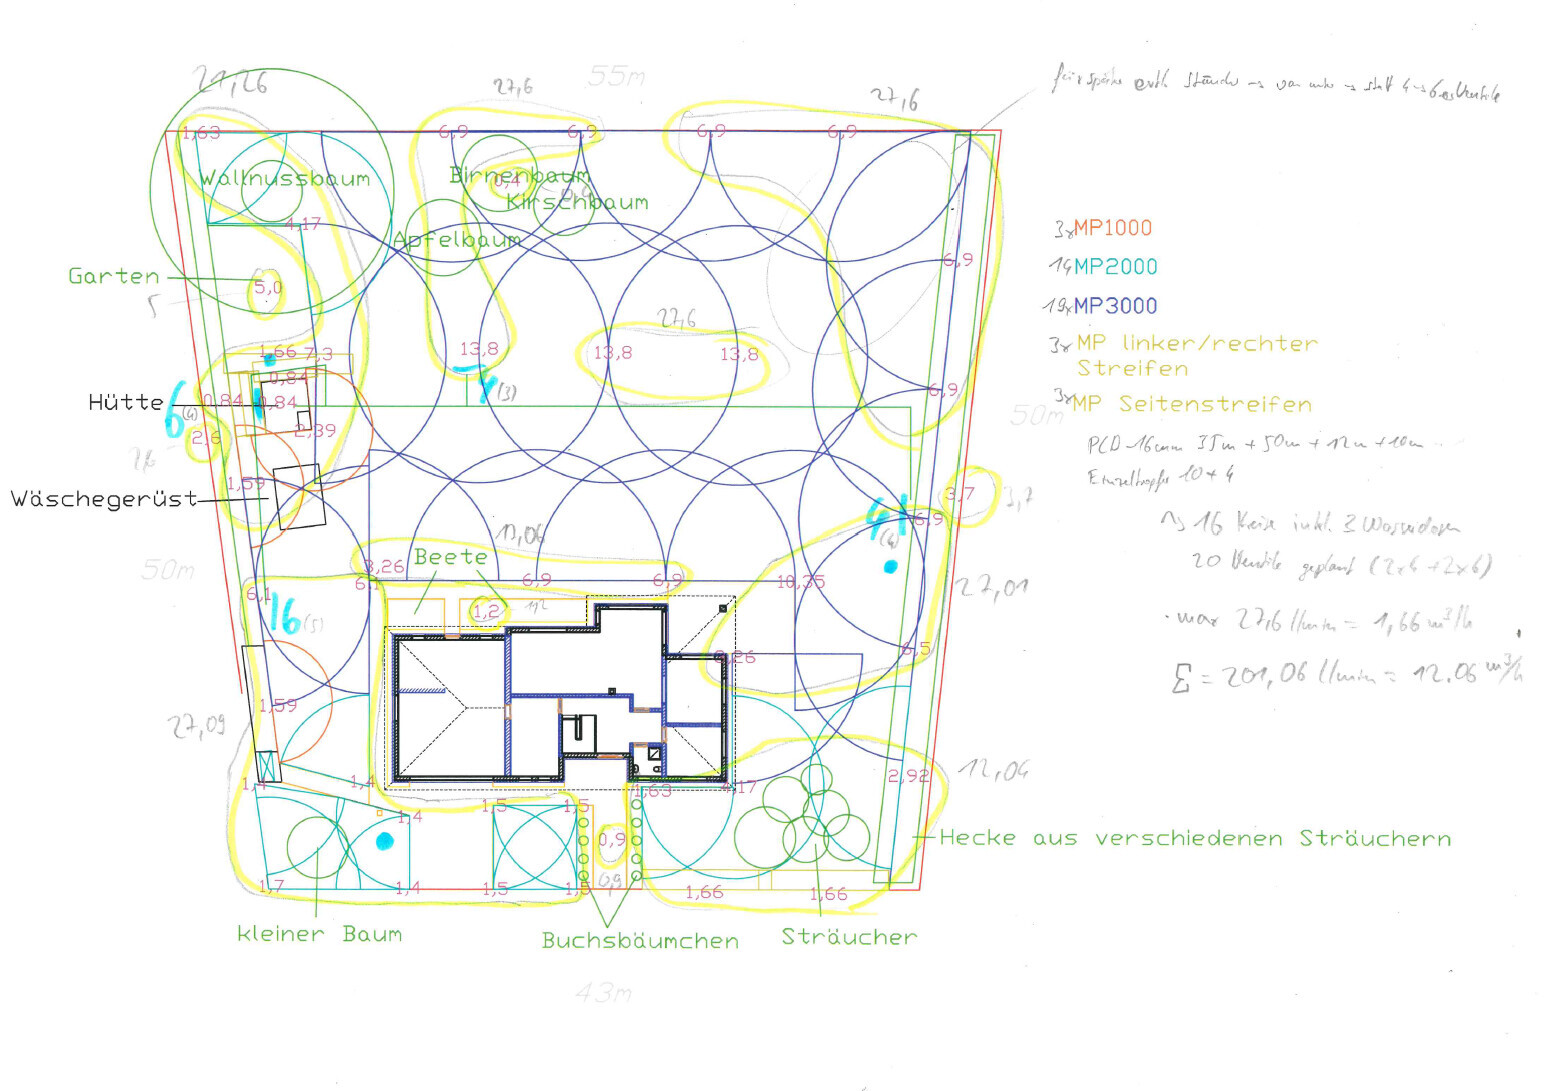 21,26
27,6
55m
27,6
1,63
6,9
6,9
6,9
6,9
Wallnussbaum
Birnenbaum
0,4
Kirschbaum
Apfelbaum
4,17
Garten
5,0
5
6,9
27,6
1,66
7,3
13,8
13,8
13,8
0,84
Hütte
6
(4)
0,84
0,84
4
(3)
6,9
50m
2,39
2,6
2,6
1,59
Wäschegerüst
3,7
3,7
4
(4)
6,9
13,06
50m
3,26
Beete
6,1
6,1
6,9
6,9
10,35
27,01
1,2
1,2
16
(5)
6,5
3,26
1,59
27,09
1,4
1,4
1,63
4,17
2,92
12,04
1,4
1,5
1,5
0,9
0,9
Hecke aus verschiedenen Sträuchern
1,7
1,4
1,5
1,5
1,66
1,66
kleiner Baum
Buchsbäumchen
Sträucher
43m
3x MP1000
14 MP2000
19x MP3000
3x MP linker/rechter
Streifen
3x MP Seitenstreifen
PCD-16mm 35m + 50m + 12m + 10m
Einzeltropfer 10+4
16 Kreise inkl. 3 Wasserdosen
20 Ventile geplant (2x4 + 2x6)
max 27,6 l/min = 1,66 m³/h
Σ = 201,06 l/min = 12.06 m³/h